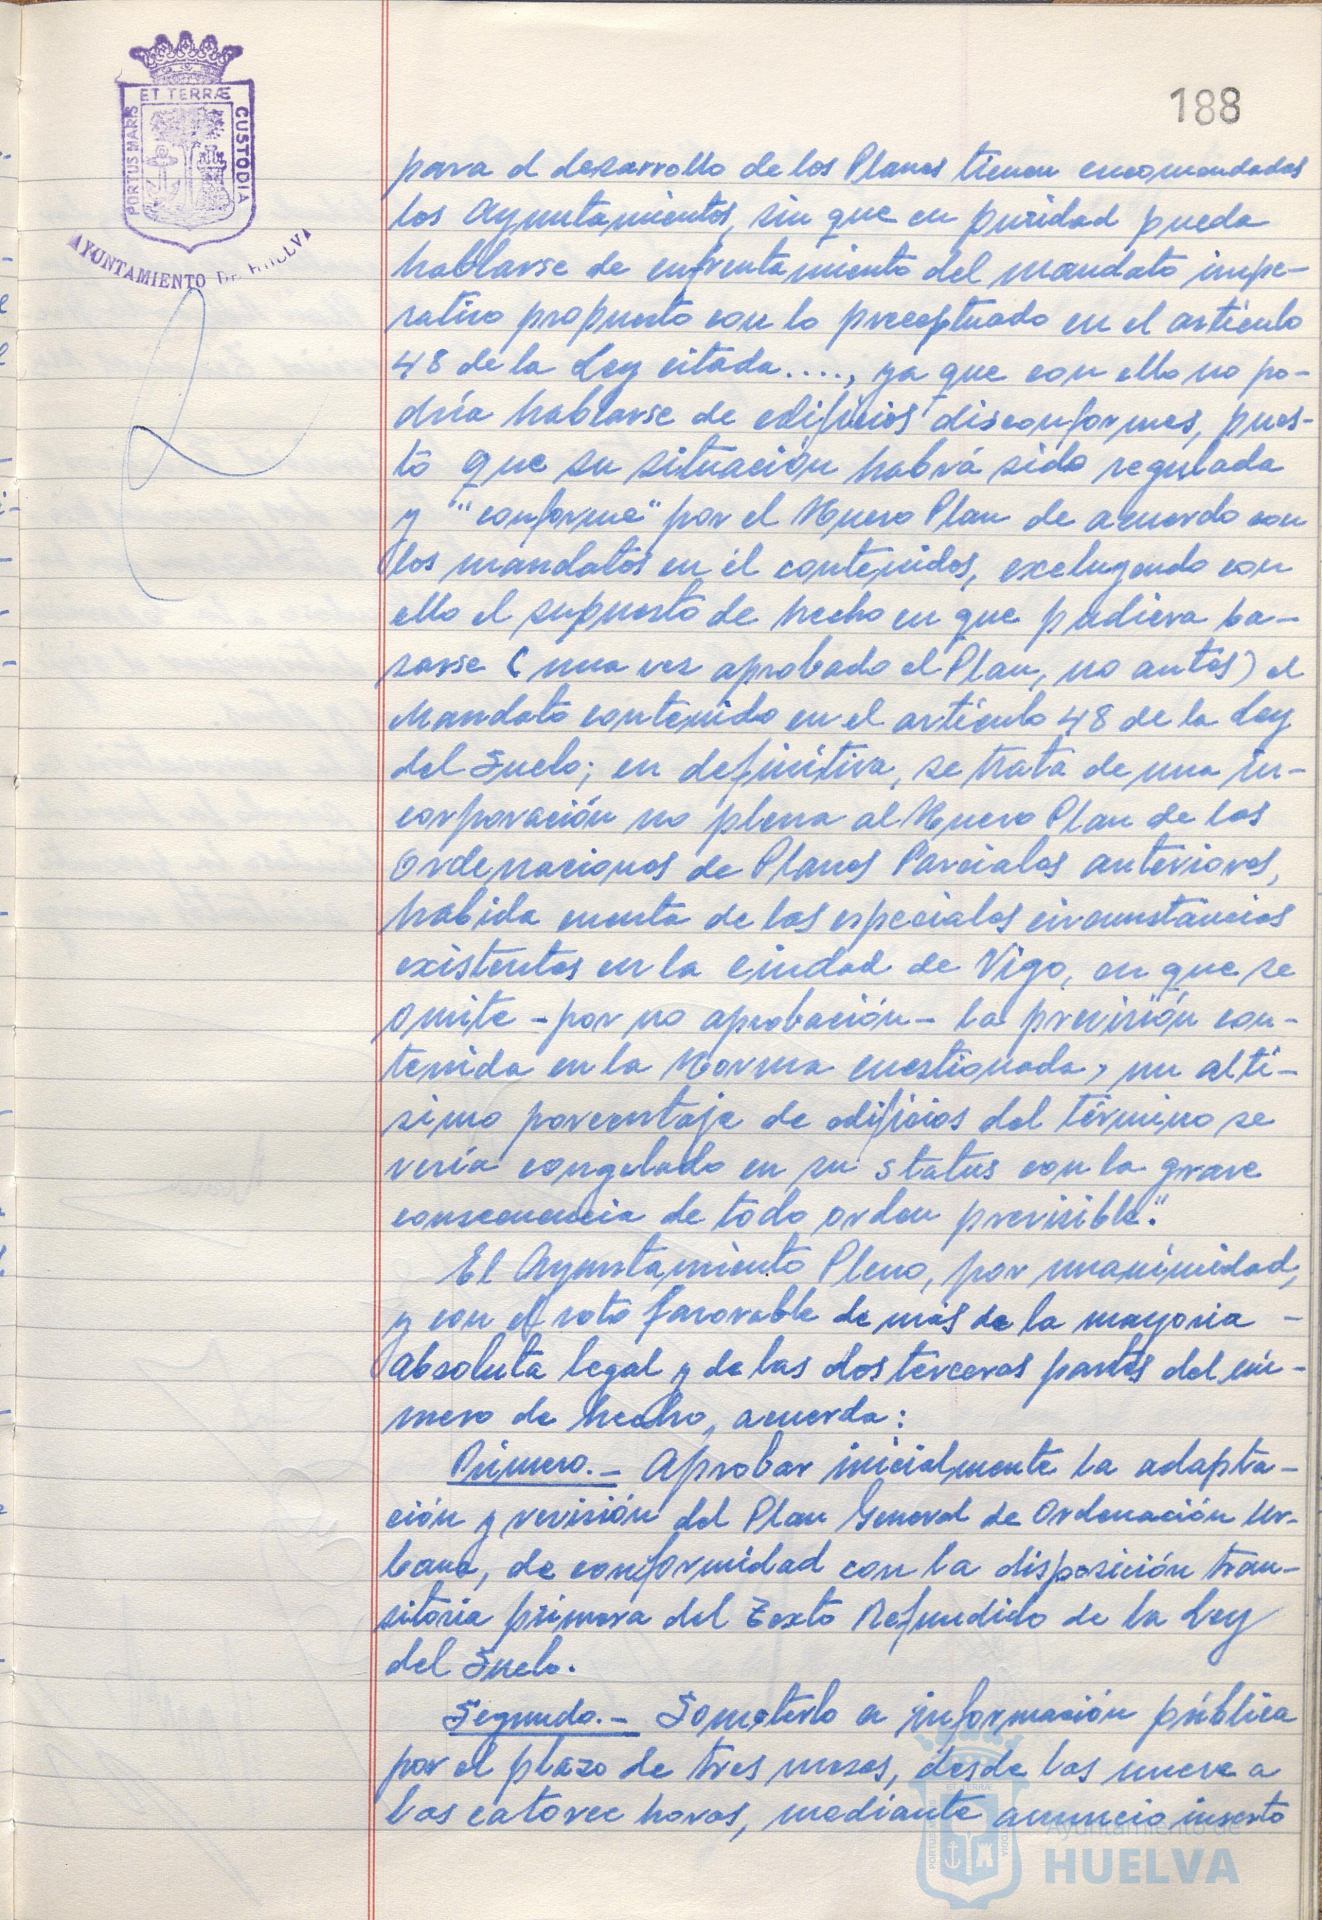 188
ET TERRÆ
PORTUS MARIS
CUSTODIA
AYUNTAMIENTO DE HUELVA
para el desarrollo de los Planes tienen encomendadas
los Ayuntamientos, sin que en puridad pueda
hablarse de enfrentamiento del mandato impe-
rativo propuesto con lo preceptuado en el artículo
48 de la Ley citada...., ya que con ello no po-
dría hablarse de edificios disconformes, pues-
to que su situación habrá sido regulada
y "conforme" por el Nuevo Plan de acuerdo con
los mandatos en él contenidos, excluyendo con
ello el supuesto de hecho en que pudiera ba-
sarse (una vez aprobado el Plan, no antes) el
mandato contenido en el artículo 48 de la Ley
del Suelo; en definitiva, se trata de una in-
corporación no plena al Nuevo Plan de las
Ordenaciones de Planes Parciales anteriores,
habida cuenta de las especiales circunstancias
existentes en la Ciudad de Vigo, en que se
omite - por no aprobación - la previsión con-
tenida en la Norma cuestionada, un altí-
simo porcentaje de edificios del término se
vería congelado en su status con la grave
consecuencia de todo orden previsible."
El Ayuntamiento Pleno, por unanimidad,
y con el voto favorable de más de la mayoria -
absoluta legal y de las dos terceras partes del nú-
mero de hecho, acuerda:
Primero.- Aprobar inicialmente la adapta-
ción y revisión del Plan General de Ordenación Ur-
bana, de conformidad con la disposición tran-
sitoria primera del Texto Refundido de la Ley
del Suelo.
Segundo.- Someterlo a información pública
por el plazo de tres meses, desde las nueve a
las catorce horas, mediante anuncio inserto
Ayuntamiento de
HUELVA